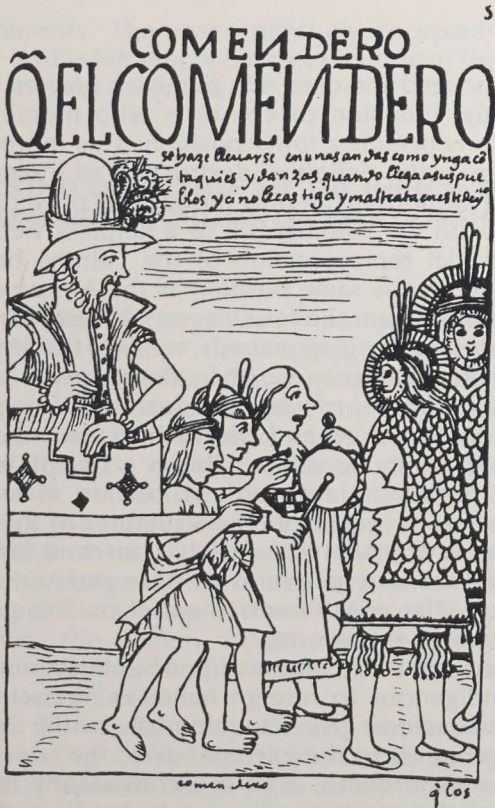 S
COMENDERO
Q̃ELCOMENDERO
se haze lleuarse en unas andas como ynga cõ
taquies y danzas quando llega a sus pue
blos y ci no le castiga y maltrata en este rey no
comendero
q̃ los